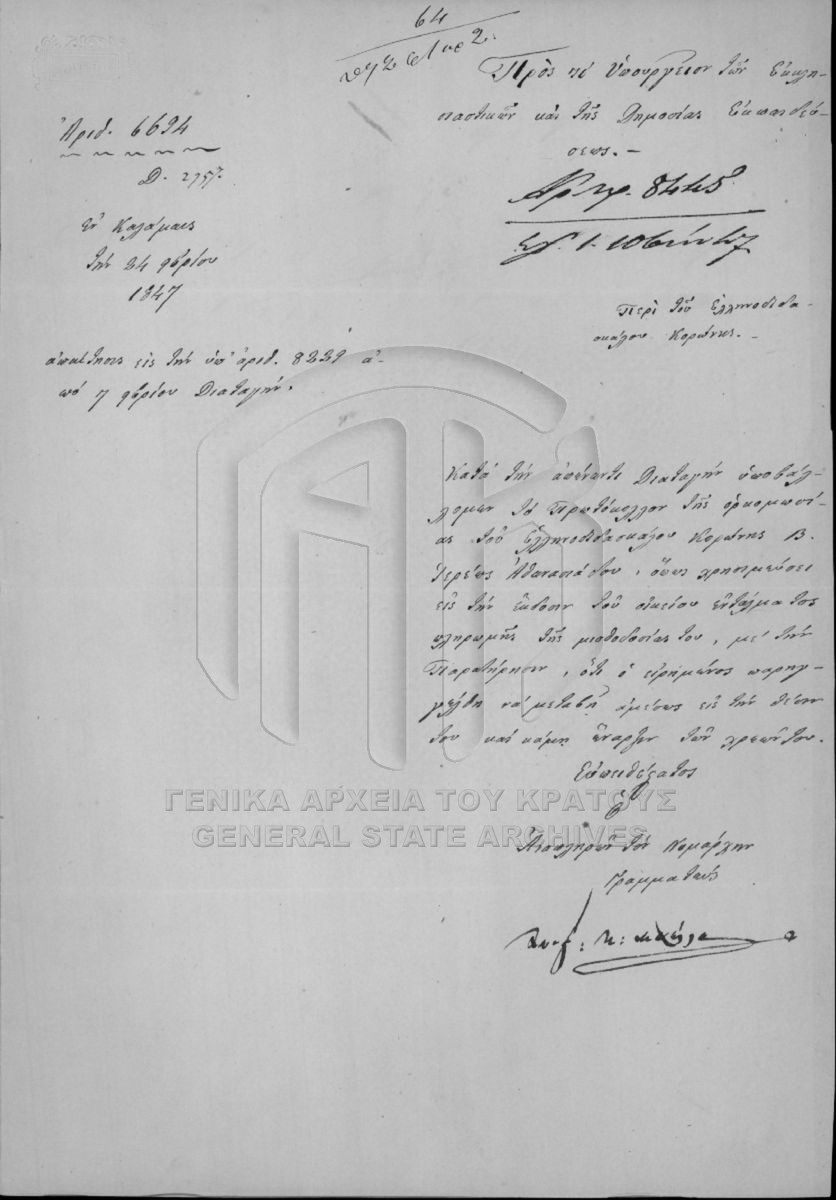 64
Πρὸς τὸ Ὑπουργεῖον τῶν Ἐκκλη-
σιαστικῶν καὶ τῆς Δημοσίας Ἐκπαιδεύ-
σεως. –
Ἀριθ. 6694
Δ. 2757.
ἐν Καλάμαις
τὴν 24 φβρίου
1847
Ἀρ. πρ. 8445
Περὶ τοῦ Ἑλληνοδιδα-
σκάλου Κορώνης. –
ἀπάντησις εἰς τὴν ὑπ' ἀριθ. 8229 ἀ-
πό 7 φβρίου Διαταγήν.
Κατὰ τὴν ἀπέναντι Διαταγὴν ὑποβάλ-
λομεν τὸ Πρωτόκολλον τῆς ὁρκομωσί-
ας τοῦ Ἑλληνοδιδασκάλου Κορώνης Β.
Ἱερέως Ἀθανασιάδου, ὅπως χρησιμεύσει
εἰς τὴν ἔκδοσιν τοῦ οἰκείου ἐντάλματος
πληρωμῆς τῆς μισθοδοσίας του, μὲ τὴν
Παρατήρησιν, ὅτι ὁ εἰρημένος παρηγ-
γέλθη νὰ μεταβῇ ἀμέσως εἰς τὴν θέσιν
του καὶ κάμῃ ἔναρξιν τῶν χρεῶν του.
Εὐπειθέστατος
Ὁ
Ἀναπληρῶν τὸν Νομάρχην
Γραμματεὺς
ΓΕΝΙΚΑ ΑΡΧΕΙΑ ΤΟΥ ΚΡΑΤΟΥΣ
GENERAL STATE ARCHIVES